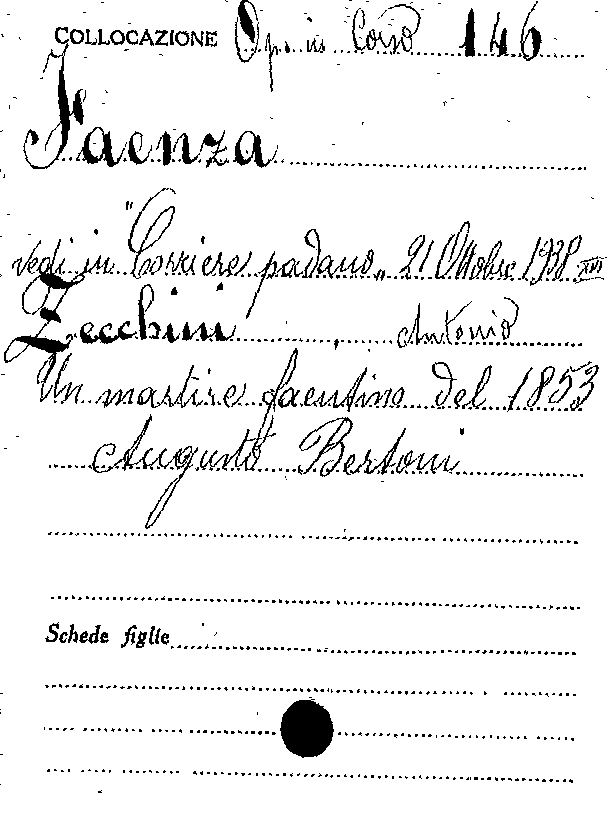 COLLOCAZIONE Op. in Corso 146
Faenza
vedi in "Corriere padano" 21 Ottobre 1938 XVI
Zecchini, Antonio
Un martire faentino del 1853
Augusto Bertoni
Schede figlie